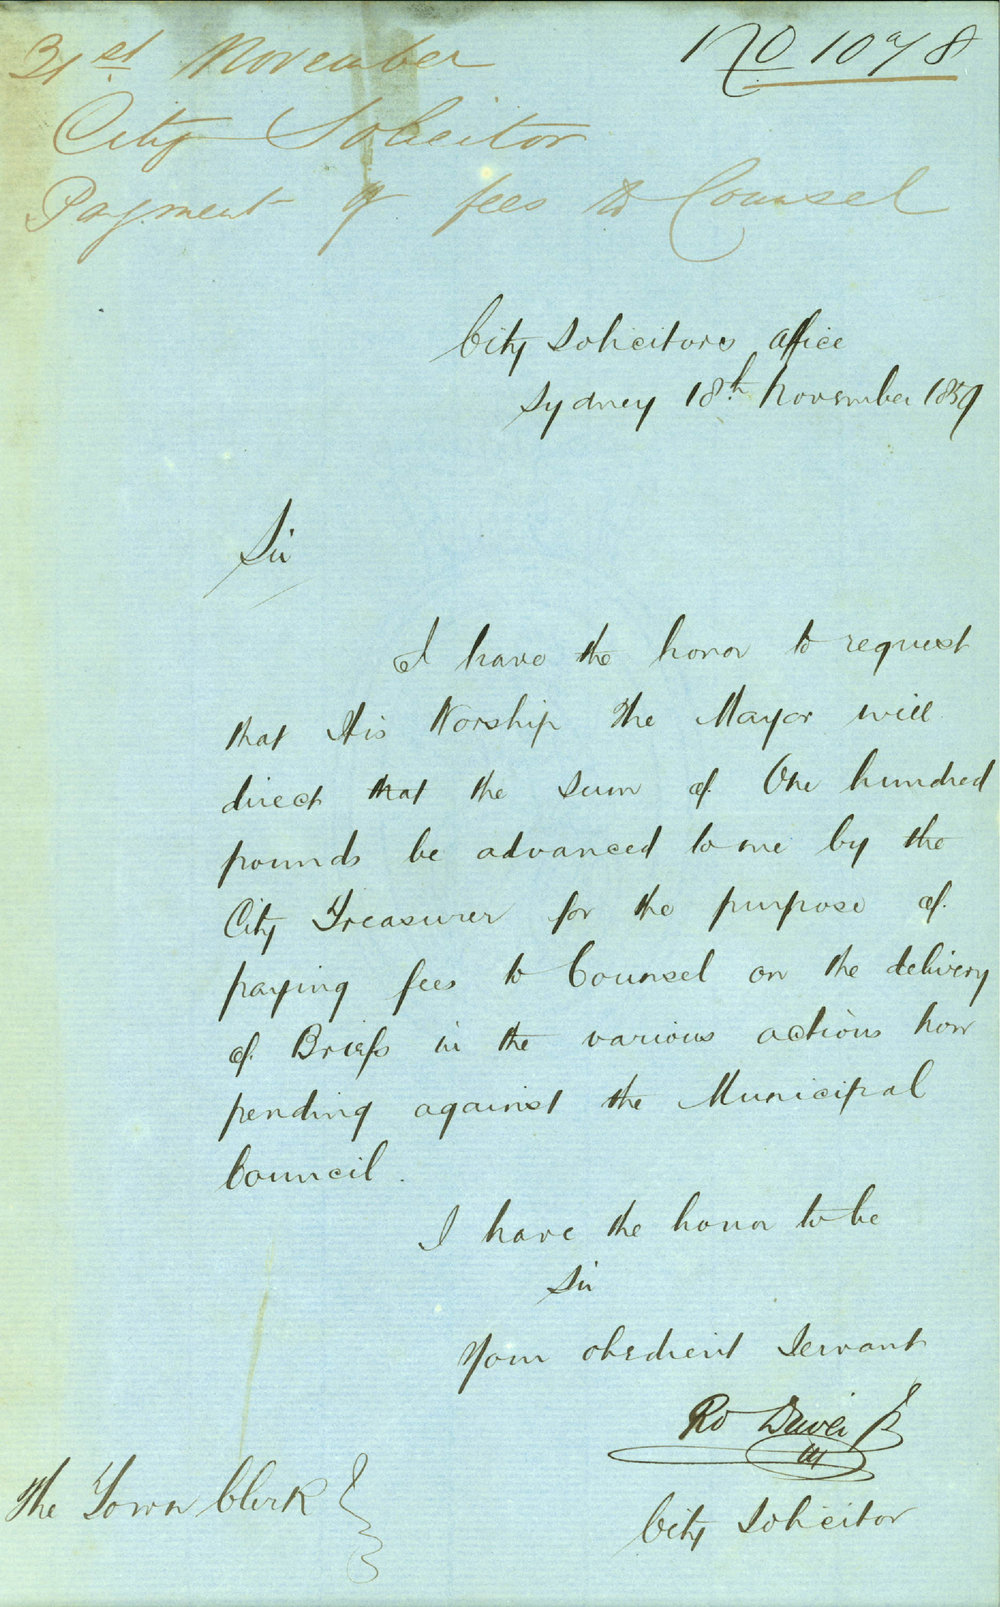 No 1078
31st November
City Solicitor
Payment of fees to Counsel
City Solicitors Office
Sydney 18th November 1859
Sir
I have the honor to request
that His Worship the Mayor will
direct that the sum of One hundred
pounds be advanced to me by the
City Treasurer for the purpose of
paying fees to Counsel on the delivery
of Briefs in the various actions now
pending against the Municipal
Council.
I have the honor to be
Sir
Your obedient Servant
City Solicitor
The Town Clerk